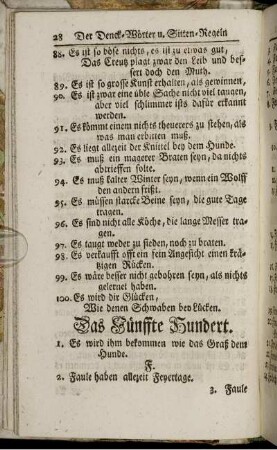 28 Der Denck-Wörter u. Sitten-Regeln
88. Es ist so böse nichts, es ist zu etwas gut,
Das Creutz plagt zwar den Leib und bes-
sert doch den Muth.
89. Es ist so grosse Kunst erhalten, als gewinnen,
90. Es ist zwar eine üble Sache nicht viel taugen,
aber viel schlimmer ists dafür erkannt
werden.
91. Es kömmt einem nichts theuerers zu stehen, als
was man erbitten muß.
92. Es liegt allezeit der Knittel bey dem Hunde.
93. Es muß ein magerer Braten seyn, da nichts
abtrieffen solte.
94. Es muß kalter Winter seyn, wenn ein Wolff
den andern frißt.
95. Es müssen starcke Beine seyn, die gute Tage
tragen.
96. Es sind nicht alle Köche, die lange Messer tra-
gen.
97. Es taugt weder zu sieden, noch zu braten.
98. Es verkaufft offt ein fein Angesicht einen krä-
tzigen Rücken.
99. Es wäre besser nicht gebohren seyn, als nichts
gelernet haben.
100. Es wird dir Glücken,
Wie denen Schwaben bey Lücken.
Das Fünffte Hundert.
1. Es wird ihm bekommen wie das Graß dem
Hunde.
F.
2. Faule haben allezeit Feyertage.
3. Faule